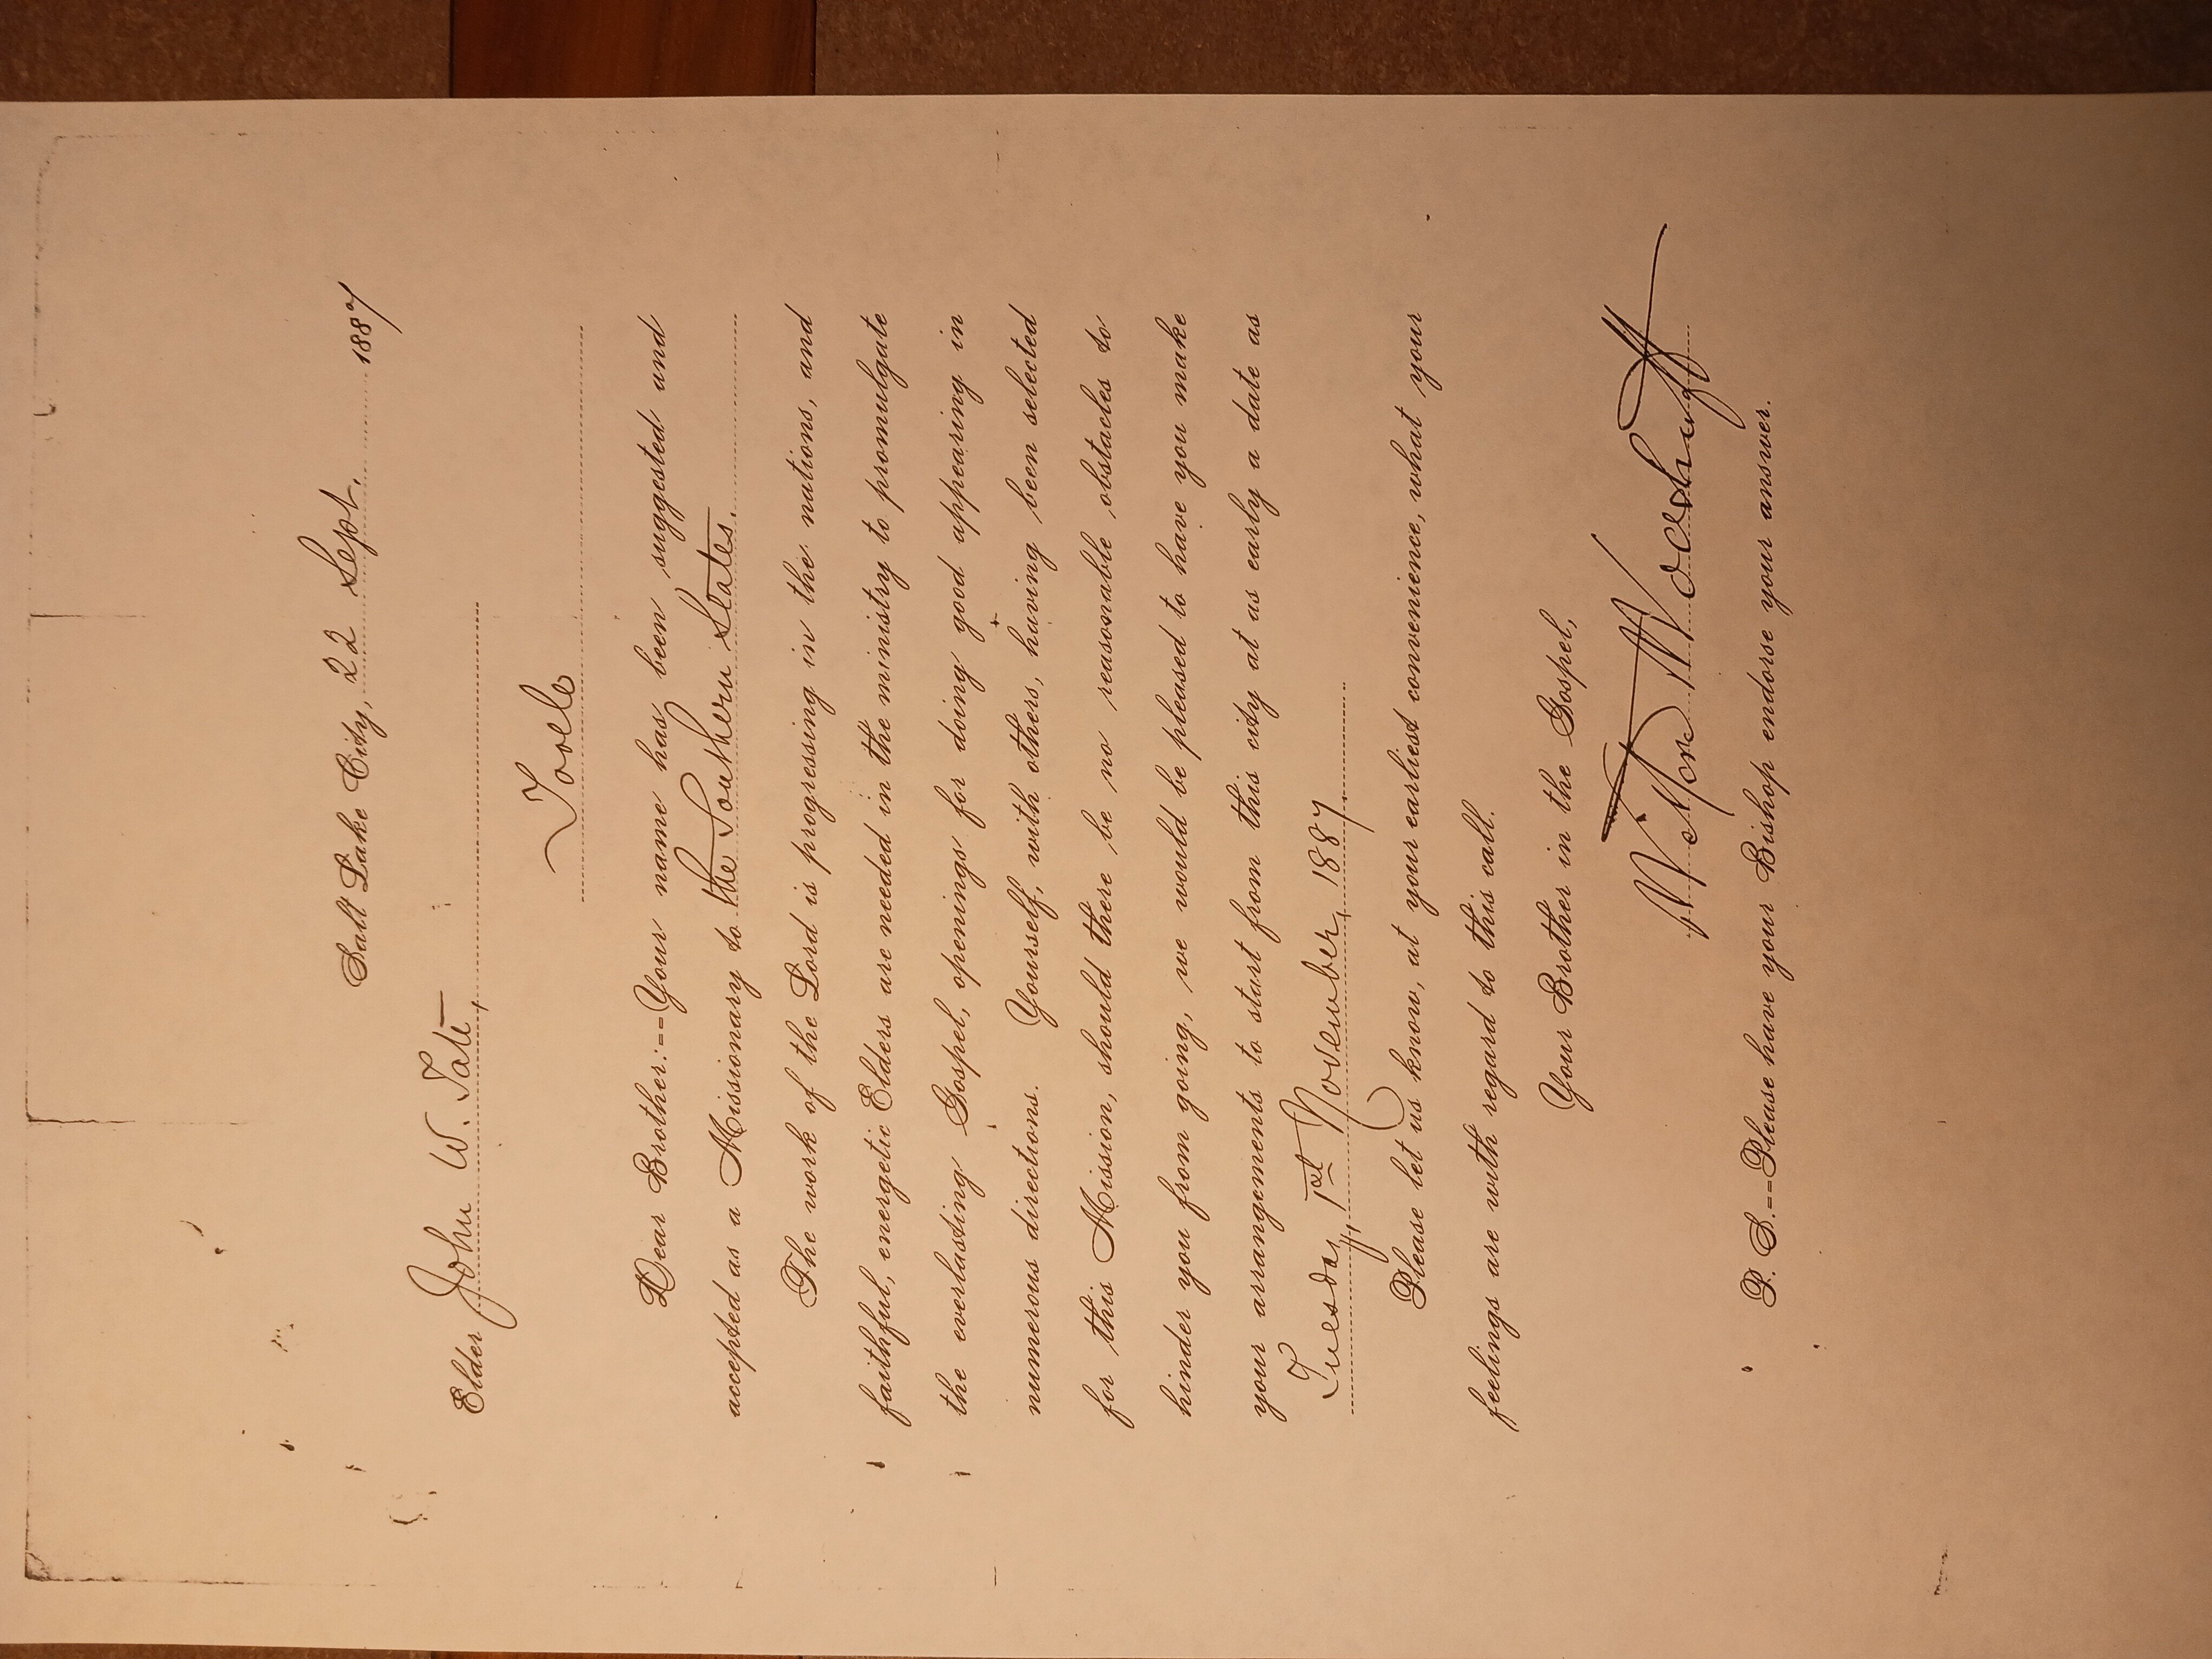 Salt Lake City, 22 Sept. 1887
Elder John W. Tate,
Tooele
Dear Brother:--Your name has been suggested and
accepted as a Missionary to the Southern States.
The work of the Lord is progressing in the nations, and
faithful, energetic Elders are needed in the ministry to promulgate
the everlasting Gospel, openings for doing good appearing in
numerous directions. Yourself, with others, having been selected
for this Mission, should there be no reasonable obstacles to
hinder you from going, we would be pleased to have you make
your arrangements to start from this city at as early a date as
Tuesday, 1st November, 1887.
Please let us know, at your earliest convenience, what your
feelings are with regard to this call.
Your Brother in the Gospel,
Wilford Woodruff
P. S.--Please have your Bishop endorse your answer.